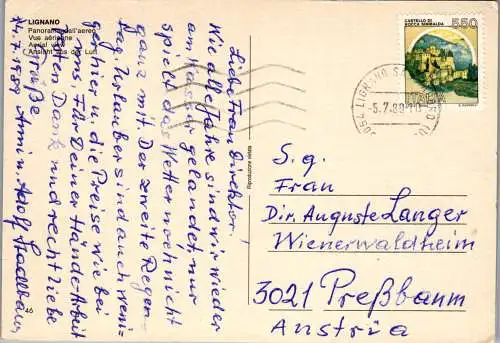 LIGNANO
Panorama dall'aereo
Vue aérienne
Aerial view
Ansicht aus der Luft
Liebe Frau Direktor!
Wie alle Jahre sind wir wieder
am Wasser gelandet, nur
spielt das Wetter noch nicht
ganz mit. Der zweite Regen-
tag. Urlauber sind auch weni-
ger hier u. die Preise wie bei
uns. Für Deine Hände-Arbeit
Dank und recht liebe
Grüße
4.7.1989 Anni u. Adolf
46
Riproduzione vietata
CASTELLO DI
ROCCA SINIBALDA
550
ITALIA
LIGNANO
-5.7.89
S. g.
Frau
Dir. Auguste Langer
Wienerwaldheim
3021 Preßbaum
Austria